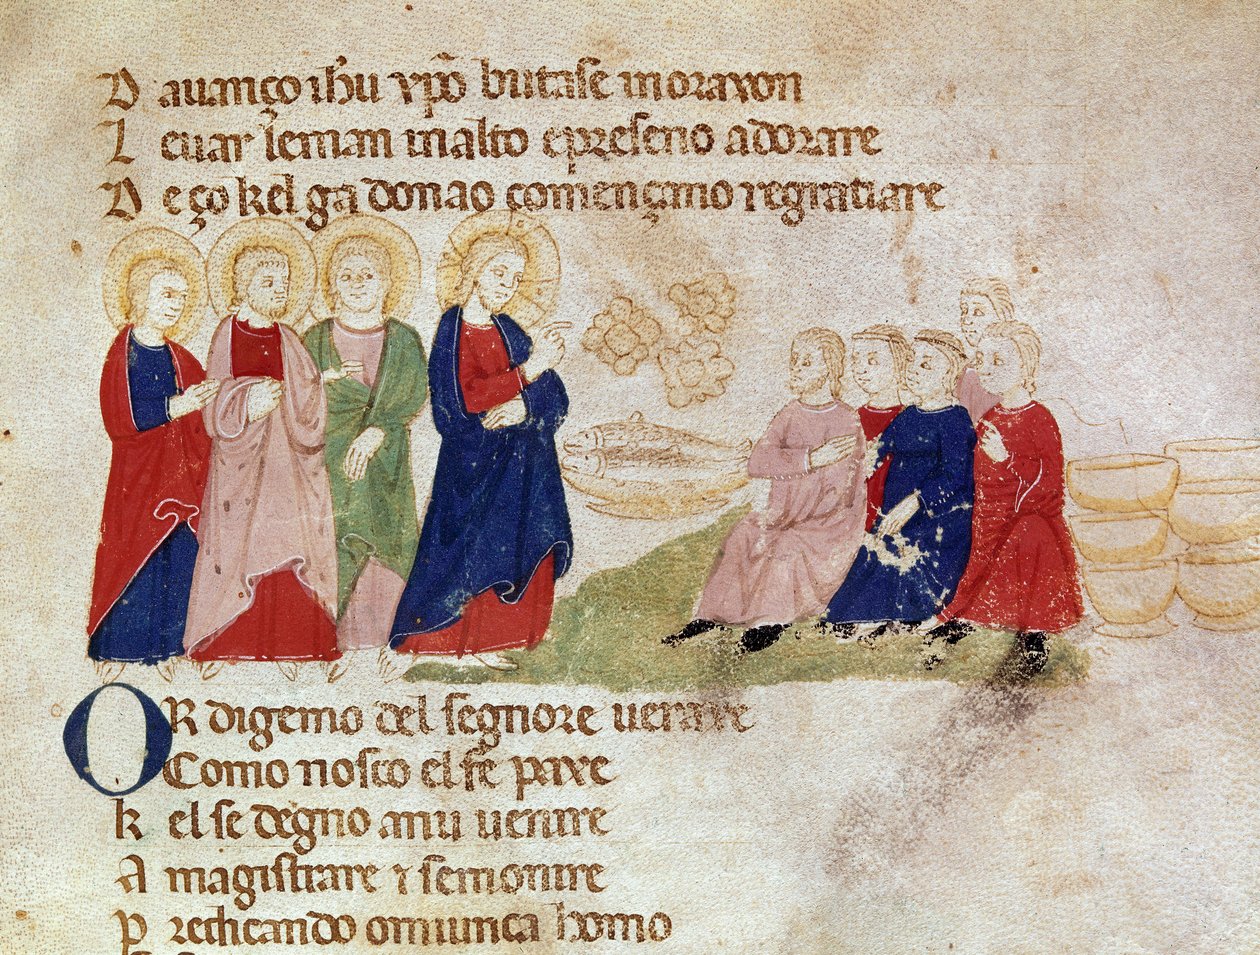 D auanço ihu xpo butase in oraxon
L euar leman inalto e preseno adorare
D e ço kel ga donao començano regratiare
OR digemo del segnore ueraxe
Como nosco el fe paxe
k el se degno a nui uenire
A magistrare ⁊ semonire
P redicando omiunca homo